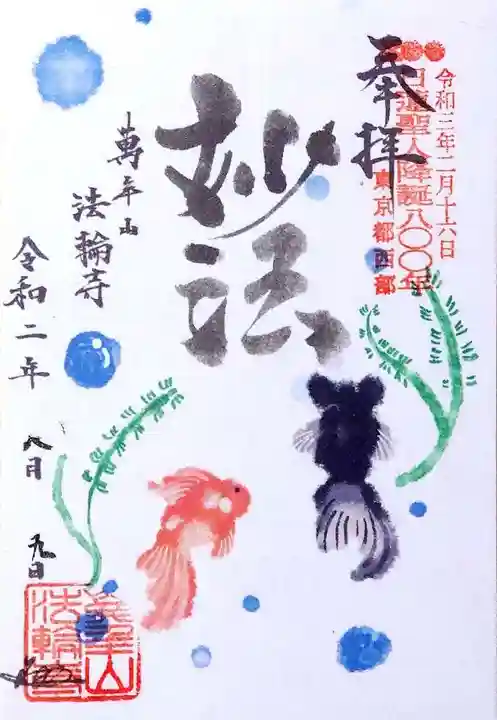 奉拝
令和三年二月十六日
日蓮聖人降誕八〇〇年
東京都西部
妙法
萬年山
法輪寺
令和二年
八月
九日
萬年山
法輪寺